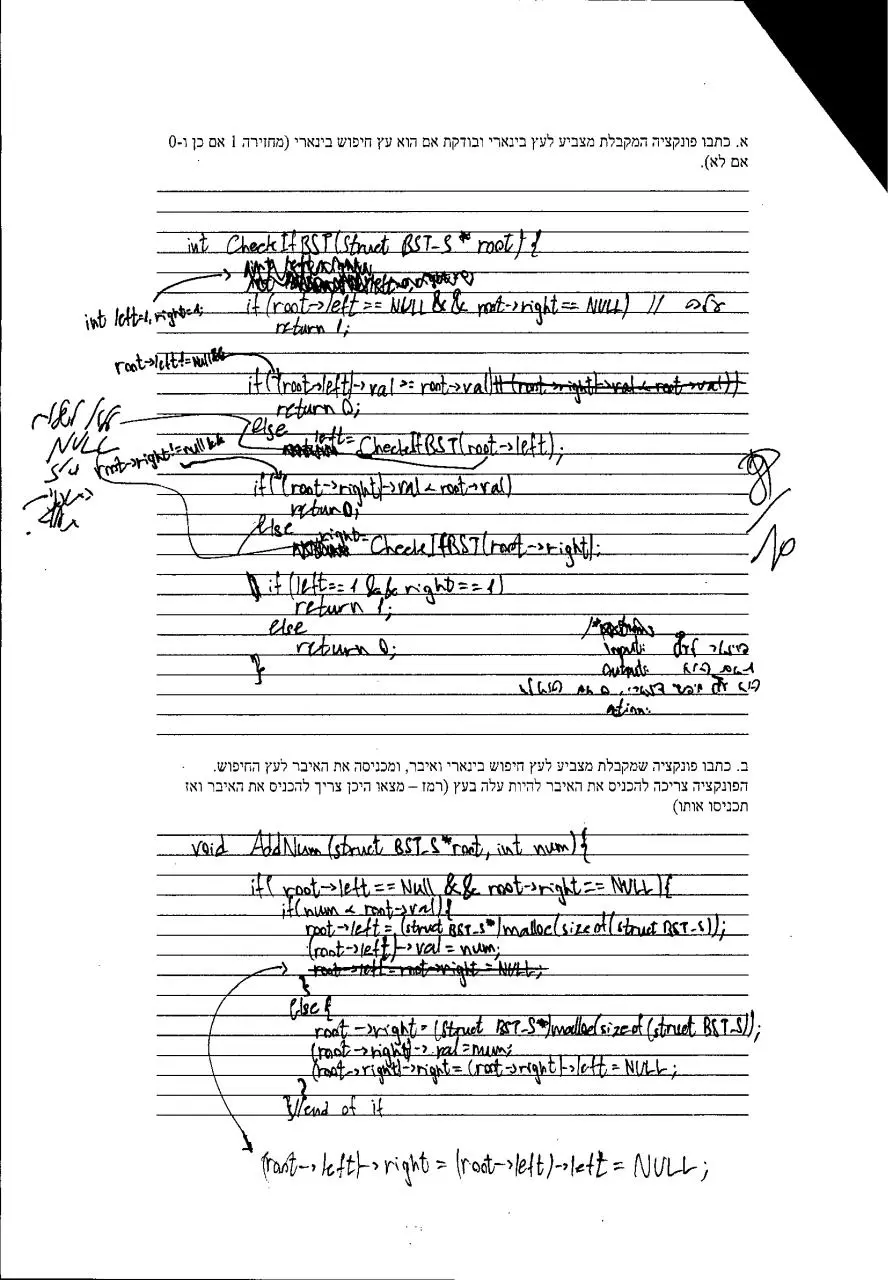 א. כתבו פונקציה המקבלת מצביע לעץ בינארי ובודקת אם הוא עץ חיפוש בינארי (מחזירה 1 אם כן ו-0
אם לא).
int CheckIfBST(struct BST_S * root) {
int left=1, right=1;
if (root->left == NULL && root->right == NULL) // עלה
return 1;
root->left != null &&
if ((root->left)->val >= root->val) || (root->right)->val < root->val))
return 0;
else
left= CheckIfBST(root->left);
NULL
root->right != null &&
if ((root->right)->val < root->val)
return 0;
else
right= CheckIfBST(root->right);
8/10
if (left == 1 && right == 1)
return 1;
else
return 0;
}
Input:
Output:
ב. כתבו פונקציה שמקבלת מצביע לעץ חיפוש בינארי ואיבר, ומכניסה את האיבר לעץ החיפוש.
הפונקציה צריכה להכניס את האיבר להיות עלה בעץ (רמז – מצאו היכן צריך להכניס את האיבר ואז
תכניסו אותו)
void AddNum (struct BST_S *root, int num) {
if( root->left == Null && root->right == NULL) {
if(num < root->val) {
root->left = (struct BST_S*)malloc(sizeof(struct BST_S));
(root->left)->val = num;
root->left = root->right = NULL;
}
else {
root->right = (struct BST_S*)malloc(sizeof(struct BST_S));
(root->right)->val = num;
(root->right)->right = (root->right)->left = NULL;
}
} //end of if
(root->left)->right = (root->left)->left = NULL;